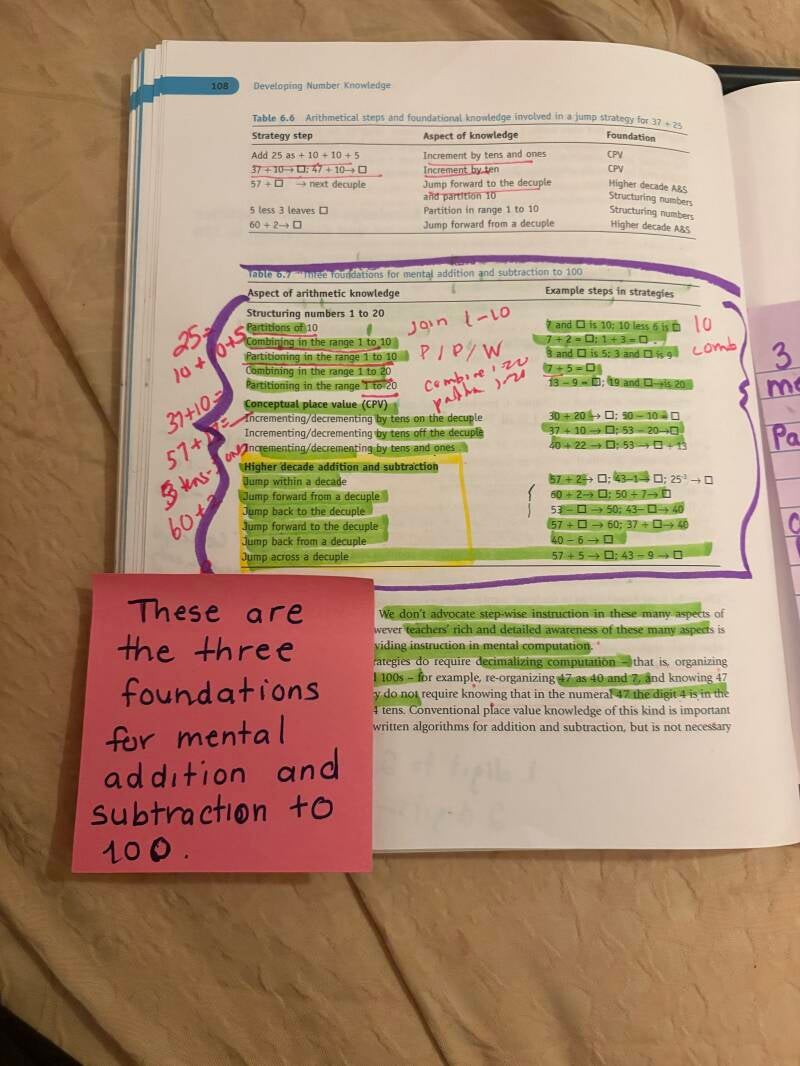 108 Developing Number Knowledge
Table 6.6 Arithmetical steps and foundational knowledge involved in a jump strategy for 37 + 25
Strategy step Aspect of knowledge Foundation
Add 25 as + 10 + 10 + 5 Increment by tens and ones CPV
37 + 10→ □; 47 + 10→ □ Increment by ten CPV
57 + □ → next decuple Jump forward to the decuple Higher decade A&S
and partition 10 Structuring numbers
5 less 3 leaves □ Partition in range 1 to 10 Structuring numbers
60 + 2→ □ Jump forward from a decuple Higher decade A&S
Table 6.7 Three foundations for mental addition and subtraction to 100
Aspect of arithmetic knowledge Example steps in strategies
Structuring numbers 1 to 20
Partitions of 10 7 and □ is 10; 10 less 6 is □
Combining in the range 1 to 10 7 + 2 = □; 1 + 3 = □
Partitioning in the range 1 to 10 3 and □ is 5; 3 and □ is 9
Combining in the range 1 to 20 7 + 5 = □
Partitioning in the range 1 to 20 13 − 9 = □; 19 and □→is 20
Conceptual place value (CPV)
Incrementing/decrementing by tens on the decuple 30 + 20 → □; 50 − 10 = □
Incrementing/decrementing by tens off the decuple 37 + 10 → □; 53 − 20→□
Incrementing/decrementing by tens and ones 40 + 22 → □; 53 → □ + 13
Higher decade addition and subtraction
Jump within a decade 57 + 2→ □; 43−1→ □; 25² → □
Jump forward from a decuple 60 + 2→ □; 50 + 7→ □
Jump back to the decuple 53 − □ → 50; 43− □→ 40
Jump forward to the decuple 57 + □ → 60; 37 + □→ 40
Jump back from a decuple 40 − 6 → □
Jump across a decuple 57 + 5 → □; 43 − 9 → □
Join 1-10
P/P/W
combine 1-20
10
comb
25=
10+10+5
37+10=
57+
60+2
We don't advocate step-wise instruction in these many aspects of
wever teachers' rich and detailed awareness of these many aspects is
viding instruction in mental computation.
rategies do require decimalizing computation – that is, organizing
100s – for example, re-organizing 47 as 40 and 7, and knowing 47
y do not require knowing that in the numeral 47 the digit 4 is in the
4 tens. Conventional place value knowledge of this kind is important
written algorithms for addition and subtraction, but is not necessary
These are
the three
foundations
for mental
addition and
subtraction to
100.
3
me
Pa